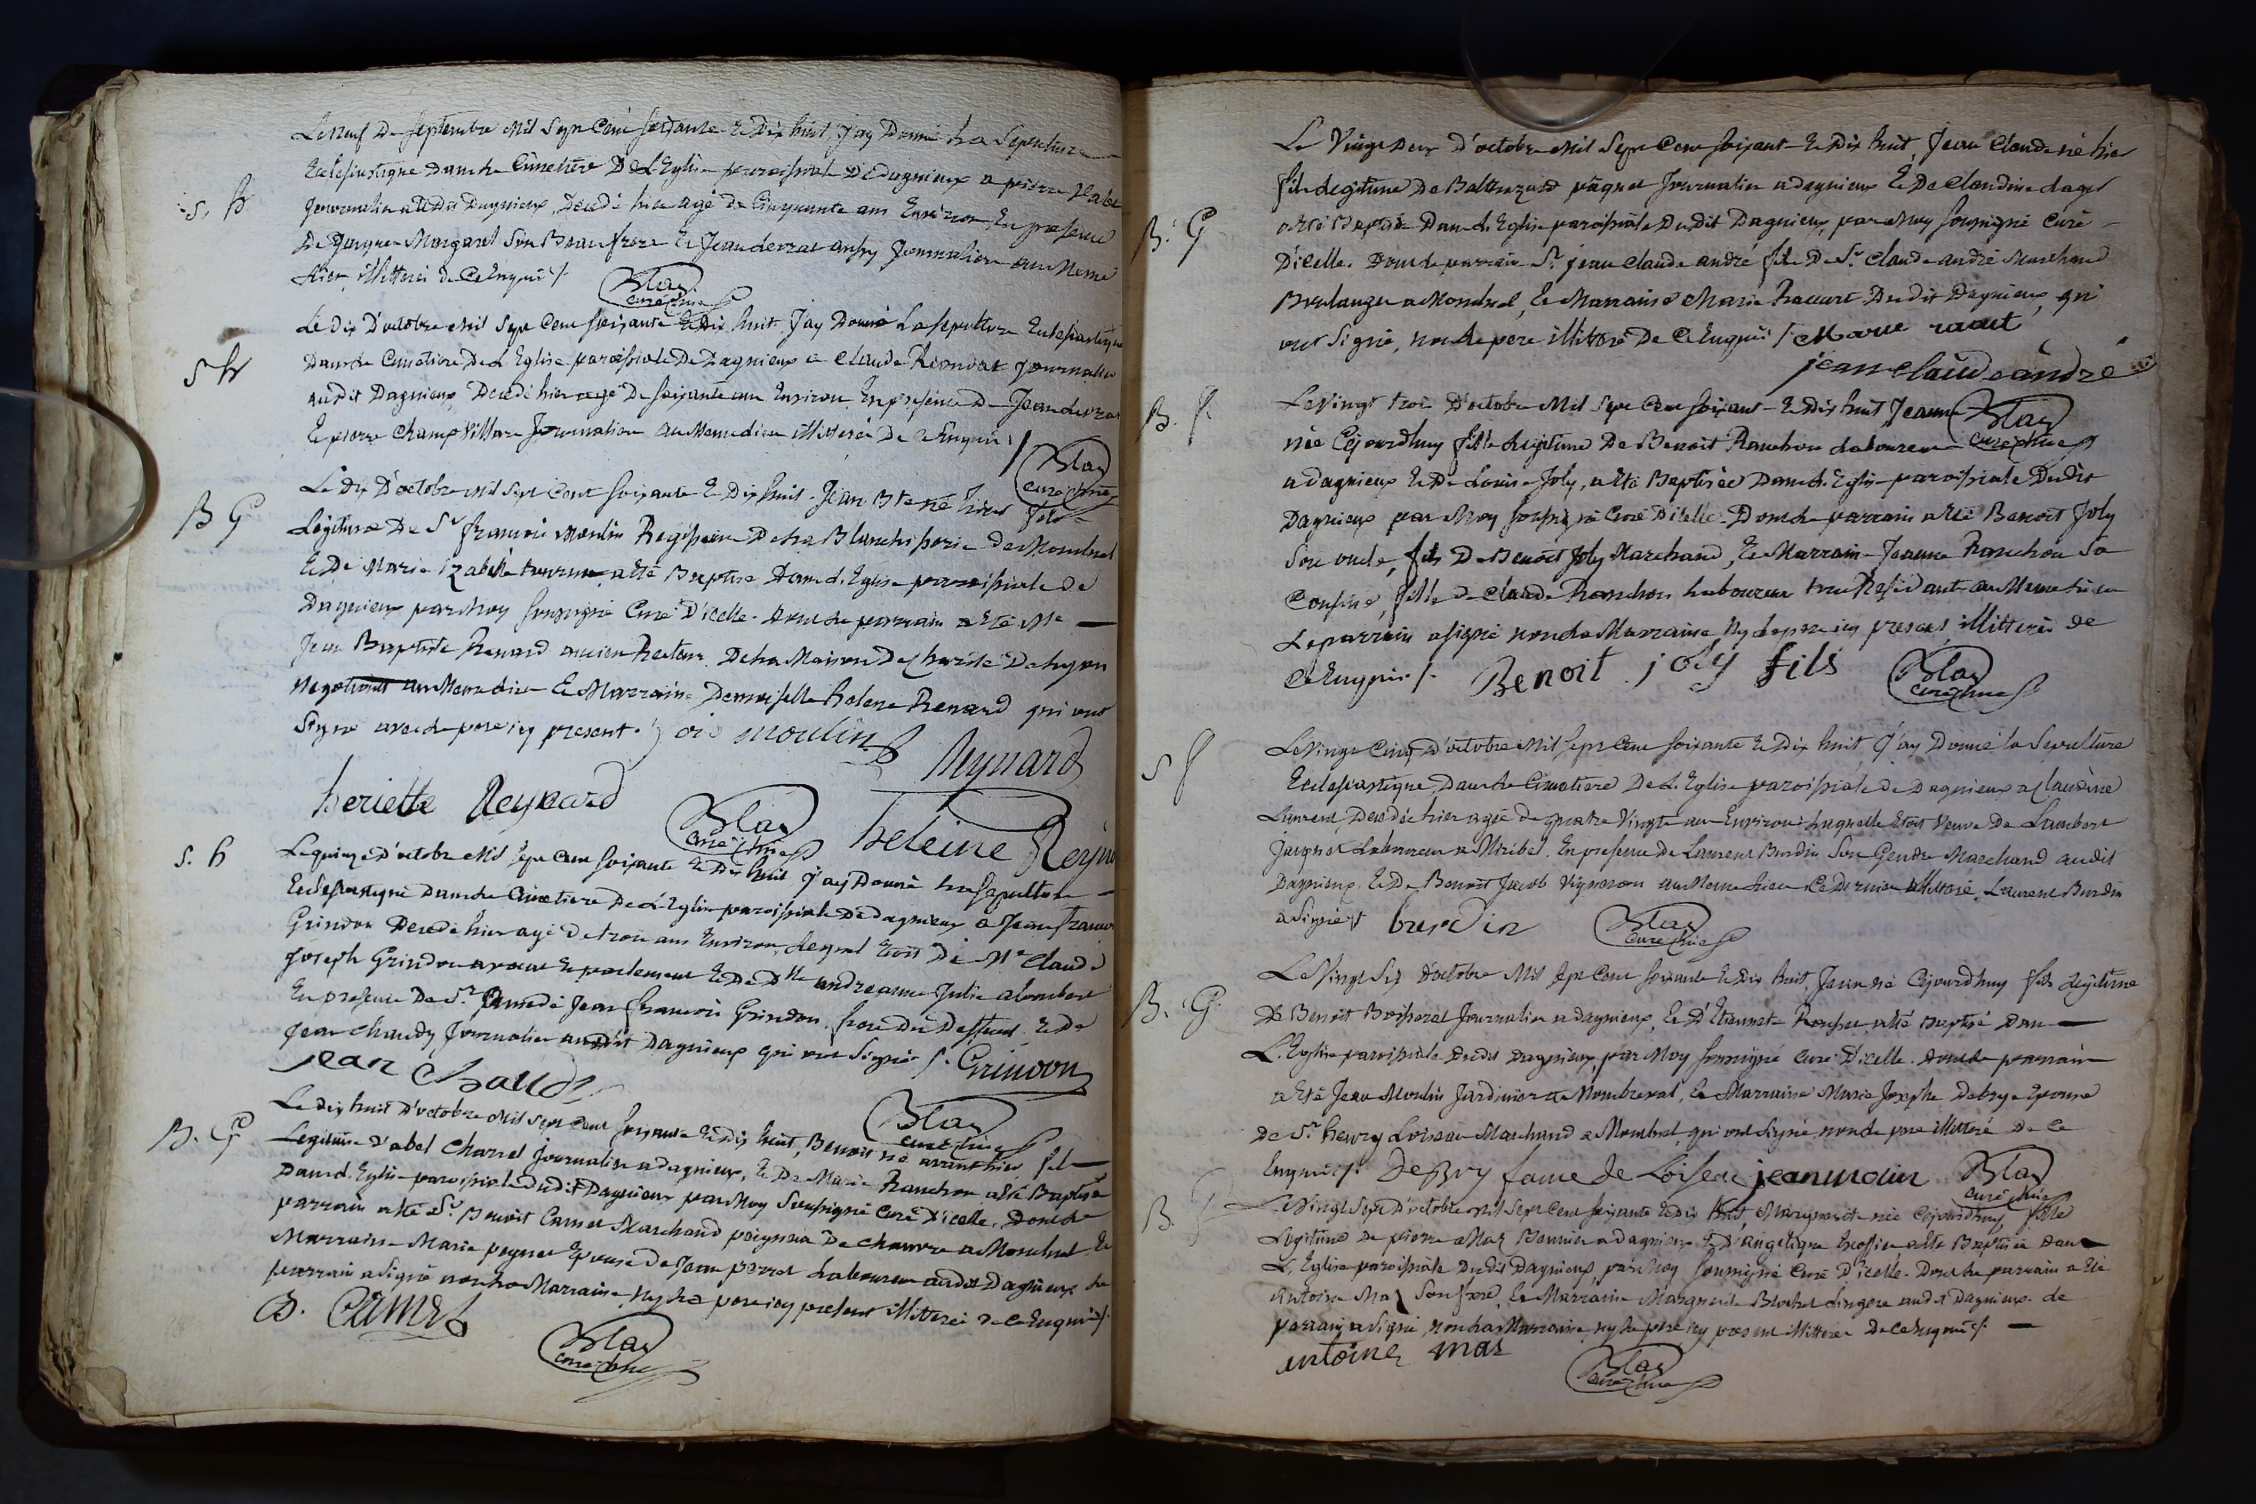 Le neuf De Septembre Mil Sept Cent soixante Et Dix huit J'ay Donné La Sepulture
Eclesiastique Dans le Cimetiere De L'Eglise paroissiale De Dagnieux a pierre
S. h
Journalier audit Dagnieux, Decedé hier agé De Cinquante ans Environ, En presence
De Margaret Son Beau frere Et Jean derrat ansy Journaliers au Meme
lieu illitteré de ce Enquis /.
Blas
curé
Le Dix D'octobre Mil Sept Cent soixante Et Dix huit J'ay Donné La sepulture Eclesiastique
S h
Dans le Cimetiere De L'Eglise paroissiale De Dagnieux a Claude Riondat Journalier
audit Dagnieux, Decedé hier agé De soixante ans Environ En presence De Jean derrat
Et pierre Champ Villars Journaliers au Meme lieu illitterés De ce Enquis /
Blas
curé
Le Dix D'octobre Mil Sept Cent soixante Et Dix huit Jean Bte né hier fils
B G
Legitime De Sr françois Moulin Regisseur De La Blanchisserie de Monluel
Et De Marie izabelle a Eté Baptisé Dans L'Eglise paroissiale De
Dagnieux par Moy soussigné Curé D'icelle. Dont Le parrain a Eté Mr
Jean Baptiste Renard ancien Recteur De La Maison De Charité De Lyon
Negotiant au Meme lieu Et Marraine Demoiselle helene Renard qui ont
Signé avec le pere icy present.
moulin
Reynard
heriette Reynard
Blas
curé
heleine Reyn
S. h
Le quinze D'octobre Mil Sept Cent soixante Et Dix huit J'ay Donné La sepulture
Eclesiastique Dans le Cimetiere De L'Eglise paroissiale De Dagnieux a Jean françois
Joseph Grindon Decedé hier agé De trois ans Environ, Lequel Etoit De Mr Claude
Grindon avocat En parlement Et De Dlle andreanne Julie alombert
En presence De Sr Jean françois Grindon frere Du Deffunt Et De
Jean chaudy Journalier audit Dagnieux qui ont Signé /.
Grindon
Jean Chaudy
Blas
curé
Le dix huit D'octobre Mil Sept Cent soixante Et Dix huit, Benoit né avant hier fils
B. G
Legitime D'abel Charvet Journalier a Dagnieux, Et De Marie Ranchon a Eté Baptisé
Dans L'Eglise paroissiale Dudit Dagnieux par Moy Soussigné Curé D'icelle. Dont le
parrain a Eté Sr Benoit Camet Marchand peigneur De chanvre a Monluel Et
Marraine Marie peynet Epouse De Jean perret Laboureur audit Dagnieux Le
parrain a Signé non La Marraine Ny Le pere icy present illitterés De ce Enquis /.
B. Camet
Blas
curé
Le Vingt Deux D'octobre Mil Sept Cent soixante Et Dix huit, Jean Claude né hier
fils Legitime De Baltazard paquet Journalier a Dagnieux Et De Claudine
B. G
a Eté Baptisé Dans L'Eglise paroissiale Dudit Dagnieux par Moy soussigné Curé
D'icelle. Dont le parrain Sr jean claude andré fils De Sr Claude andré Marchand
Boulanger a Monluel, Et Marraine Marie Dudit Dagnieux, qui
ont Signé, non Le pere illitteré De ce Enquis /. Marie
jean claude andré
Blas
curé
Le Vingt trois D'octobre Mil Sept Cent soixante Et Dix huit Jeanne
B. f
née Cejourd'huy fille Legitime De Benoit Ranchon Laboureur
a Dagnieux Et De Louise Joly, a Eté Baptisée Dans L'Eglise paroissiale Dudit
Dagnieux par Moy soussigné Curé D'icelle. Dont le parrain a Eté Benoit Joly
Son oncle, fils De Benoit Joly Marchand, Et Marraine Jeanne Ranchon Sa
Cousine, fille De Claude Ranchon Laboureur tous Residants au Meme Lieu
Le parrain a signé non La Marraine Ny Le pere icy present illitterés de
ce Enquis /.
Benoit joly fils
Blas
curé
Le Vingt Cinq D'octobre Mil Sept Cent soixante Et Dix huit J'ay Donné La Sepulture
S f
Eclesiastique, Dans le Cimetiere De L'Eglise paroissiale De Dagnieux a Claudine
Laurent, Decedée hier agée de quatre Vingts ans Environ Laquelle Etoit Veuve De Lambert
Jacquet Laboureur a Miribel. En presence De Laurent Burdin Son Gendre Marchand audit
Dagnieux, Et De Benoit Jacob Vigneron au Meme Lieu Ce Dernier illitteré, Laurent Burdin
a Signé /.
burdin
Blas
curé
Le Vingt Six D'octobre Mil Sept Cent soixante Et Dix huit, Jean né Cejourd'huy fils Legitime
B. G.
De Benoit Journalier a Dagnieux, Et D'Etiennette a Eté Baptisé Dans
L'Eglise paroissiale Dudit Dagnieux, par Moy soussigné Curé D'icelle. Dont le parrain
a Eté Jean Moulin Jardinier a Et Marraine Marie Josephe Debry Epouse
De Sr henry Loiseau Marchand a Monluel, qui ont Signé, non Le pere illitteré De ce
Enquis /. De Bry fame de Loiseau jean moulin
Blas
curé
B. f
Le Vingt Sept D'octobre Mil Sept Cent soixante Et Dix huit, Margueritte née Cejourd'huy fille
Legitime De pierre Mas a Dagnieux Et D'angelique a Eté Baptisée Dans
L'Eglise paroissiale Dudit Dagnieux, par Moy soussigné Curé D'icelle. Dont Le parrain a Eté
Antoine Mas Son frere, Et Marraine Margueritte Blochet Lingere audit Dagnieux. Le
parrain a Signé non La Marraine ny Le pere icy present illitterés De ce Enquis /.
antoine mas
Blas
curé